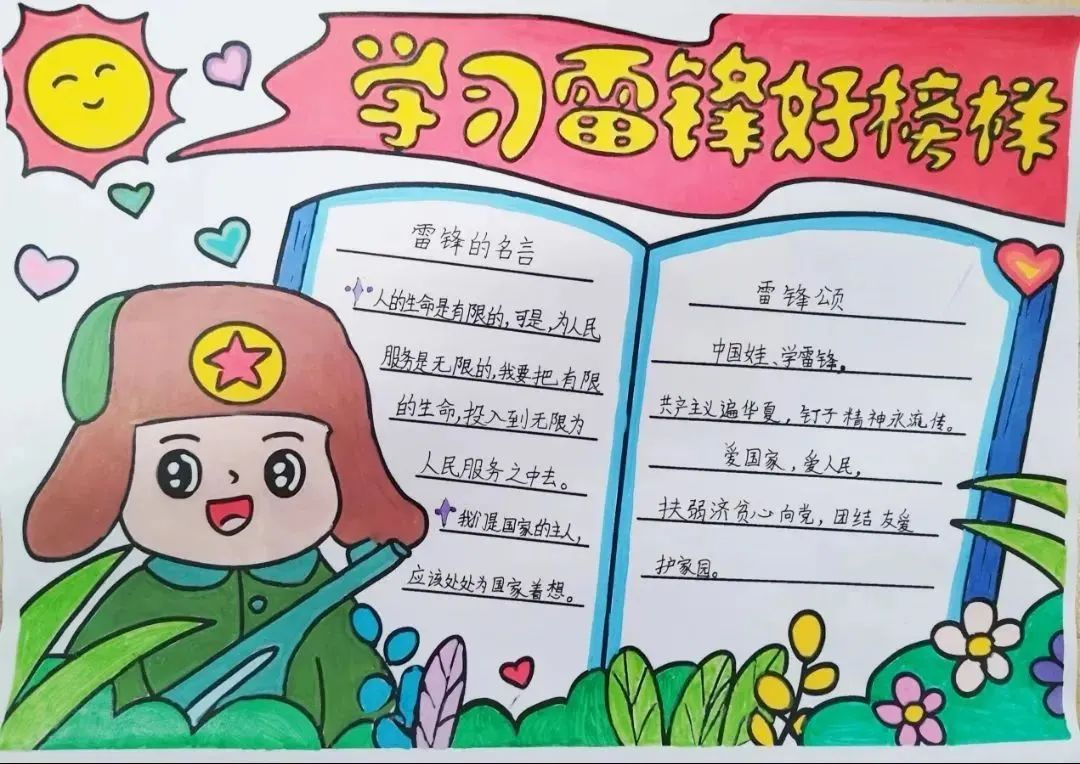 学习雷锋好榜样
雷锋的名言
人的生命是有限的,可是,为人民
服务是无限的,我要把有限
的生命,投入到无限为
人民服务之中去。
我们是国家的主人,
应该处处为国家着想。
雷锋颂
中国娃、学雷锋。
共产主义遍华夏,钉子精神永流传。
爱国家,爱人民,
扶弱济贫心向党,团结友爱
护家园。